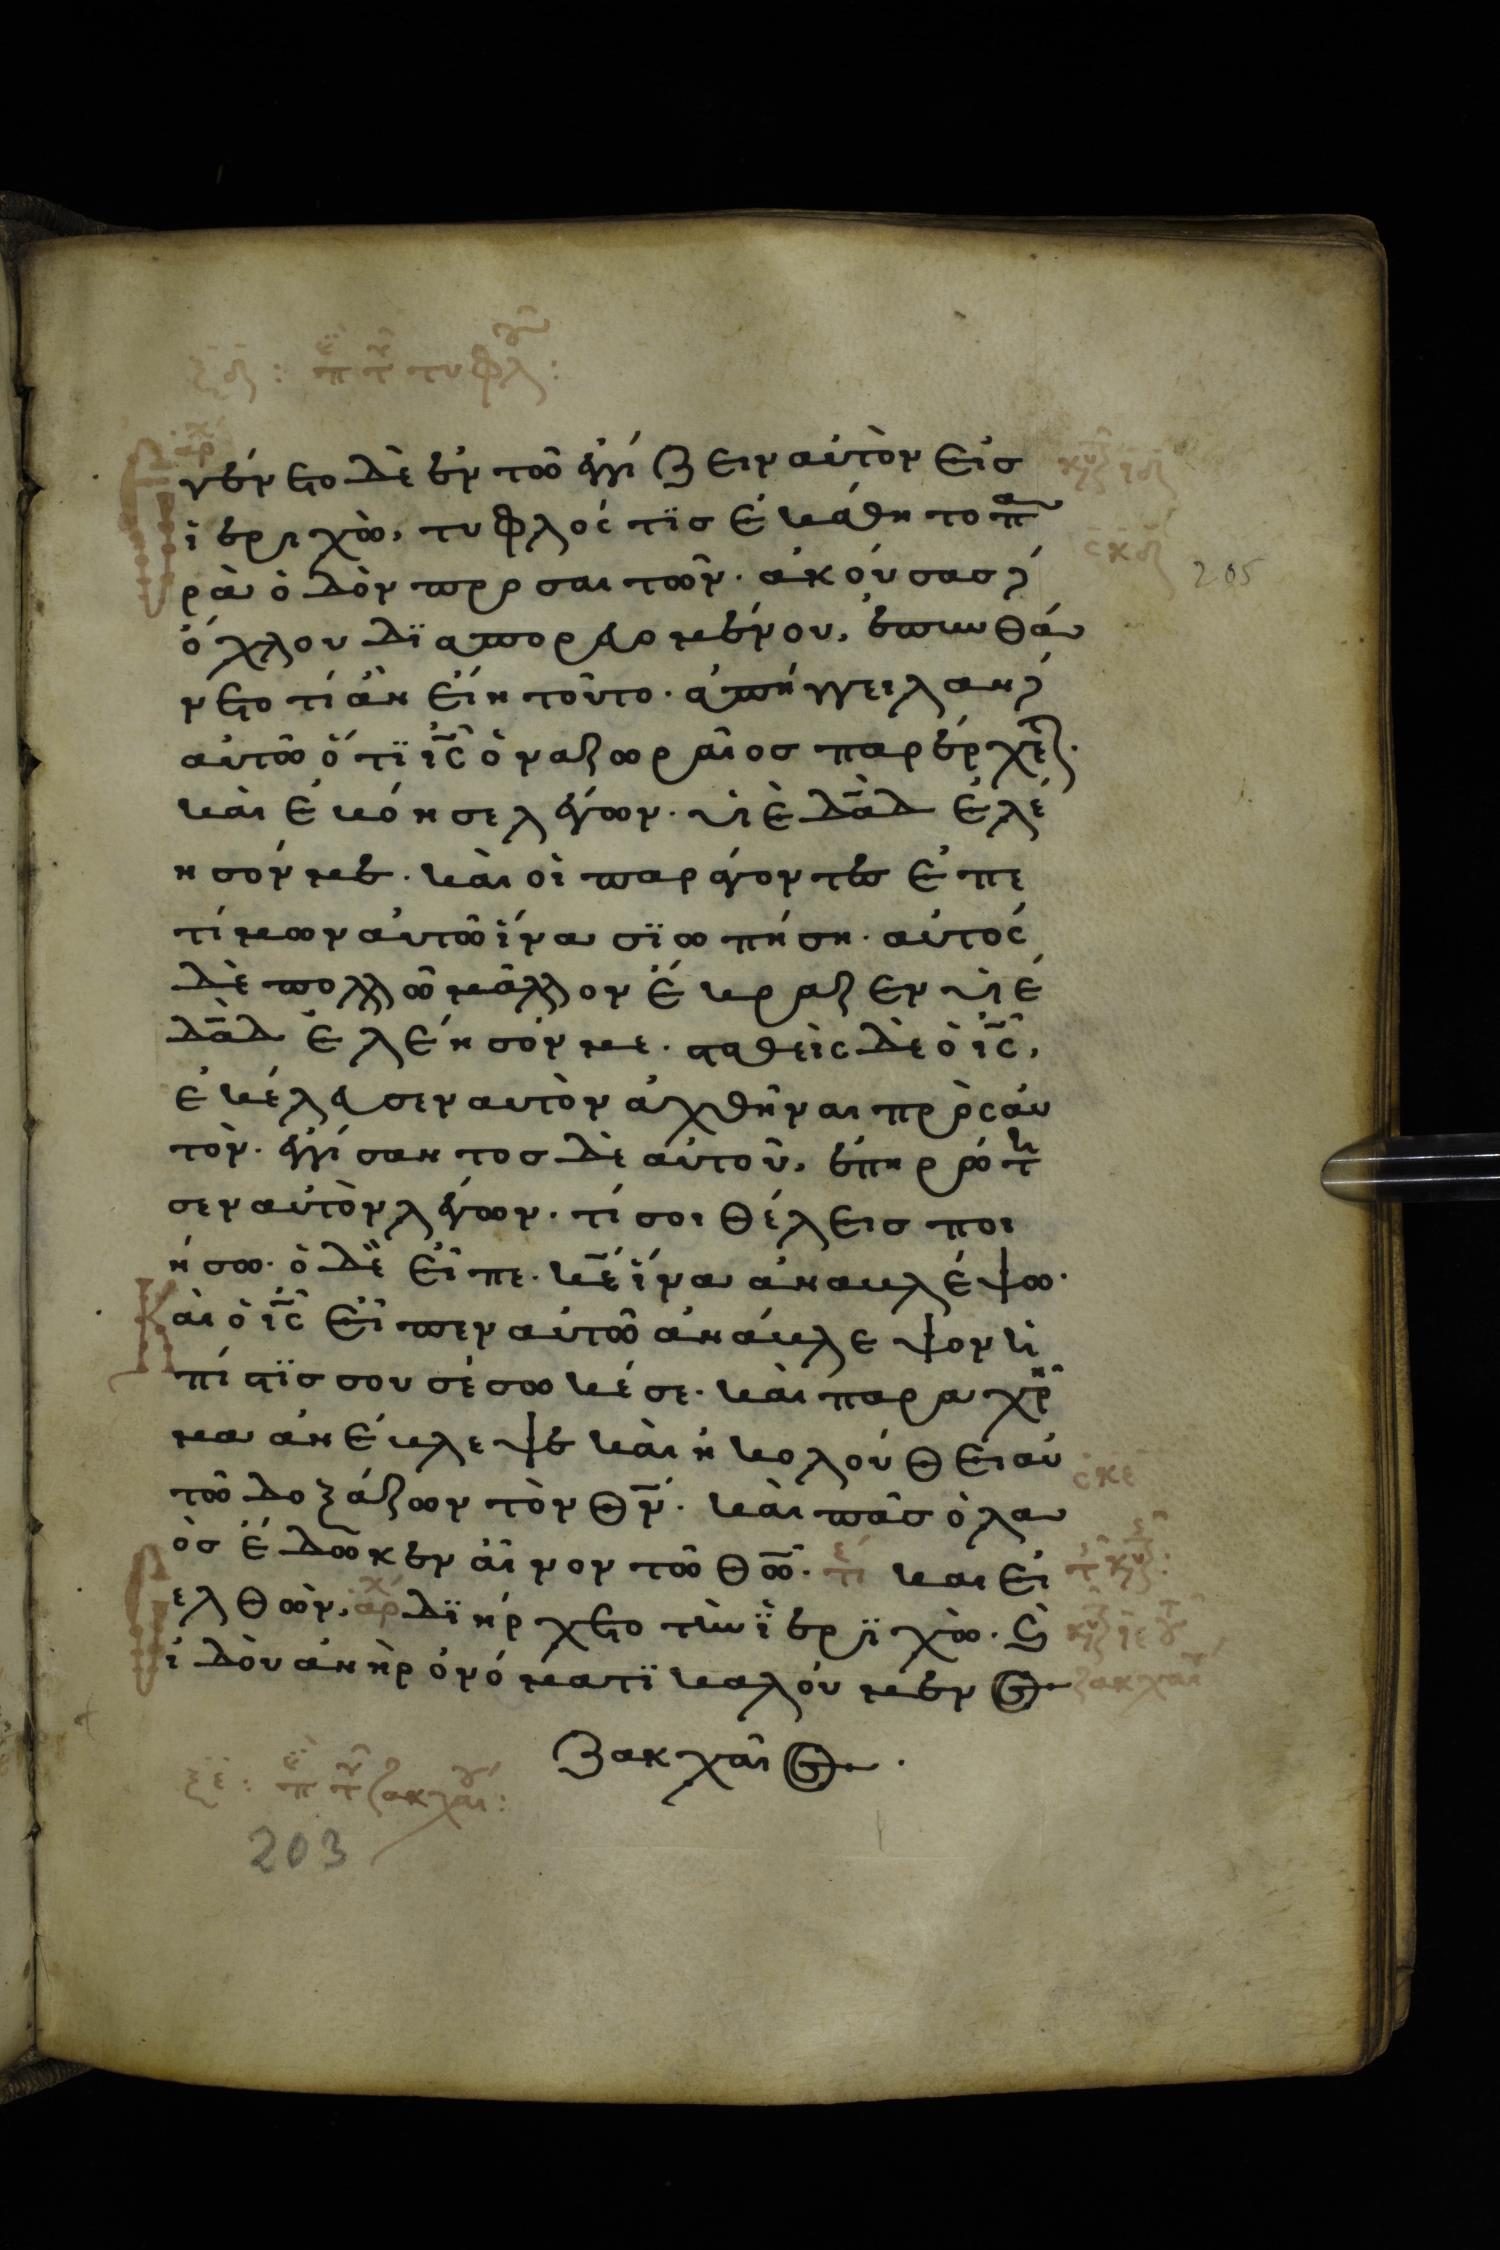 ξδ: ἐπὶ τοῦ τυφλοῦ:
Ἐγένετο δὲ ἐν τῶ ἐγγίζειν αὐτὸν εἰσ
ἰεριχὼ, τυφλός τϊσ ἐκάθητο πα
ρὰ ὁδὸν προσαιτῶν. ἀκούσασ δὲ
ὄχλου δϊαπορευομένου, ἐπυνθά
νετο τί ἂν εἴη τοῦτο. ἀπήγγειλαν δὲ
αὐτῶ ὅτϊ ις ὁ ναζωραῖοσ παρέρχεται.
καὶ ἐβόησε λέγων. υἱὲ δαδ ἐλέ
ησόν με. καὶ οἱ παράγοντεσ ἐπε
τίμων αὐτῶ ἵνα σϊωπήση. αὐτός
δὲ πολλῶ μᾶλλον ἔκραζεν υἱέ
δαδ ἐλέησόν με. σταθεὶς δὲ ὁ ις,
ἐκέλευσεν αυτὸν ἀχθῆναι πρὸς αὐ
τόν. ἐγγίσαντοσ δὲ αὐτοῦ, ἐπηρώτη
σεν αὐτὸν λέγων. τί σοι θέλεισ ποι
ήσω. ὁ δὲ εἶπε. κε ἵνα ἀναβλέψω.
Καὶ ὁ ις εἶπεν αὐτῶ ἀνάβλεψον ἡ
πίστϊσ σου σέσωκέ σε. καὶ παραχρῆ
μα ἀνέβλεψε καὶ ἠκολούθει αὐ
τῶ δοξάζων τὸν θν. καὶ πᾶσ ὁ λα
ὸσ ἔδωκεν αἶνον τῶ θω. τέ καὶ εἰ
ελθὼν, ἀρχ διήρχετο τὴν ἰεριχὼ. καὶ
ἰδοὺ ἀνὴρ ὀνόματϊ καλούμενοσ
ζακχαῖοσ.
σκδ
205
σκε
ξε: ἐπὶ τοῦ ζακχαίου:
203